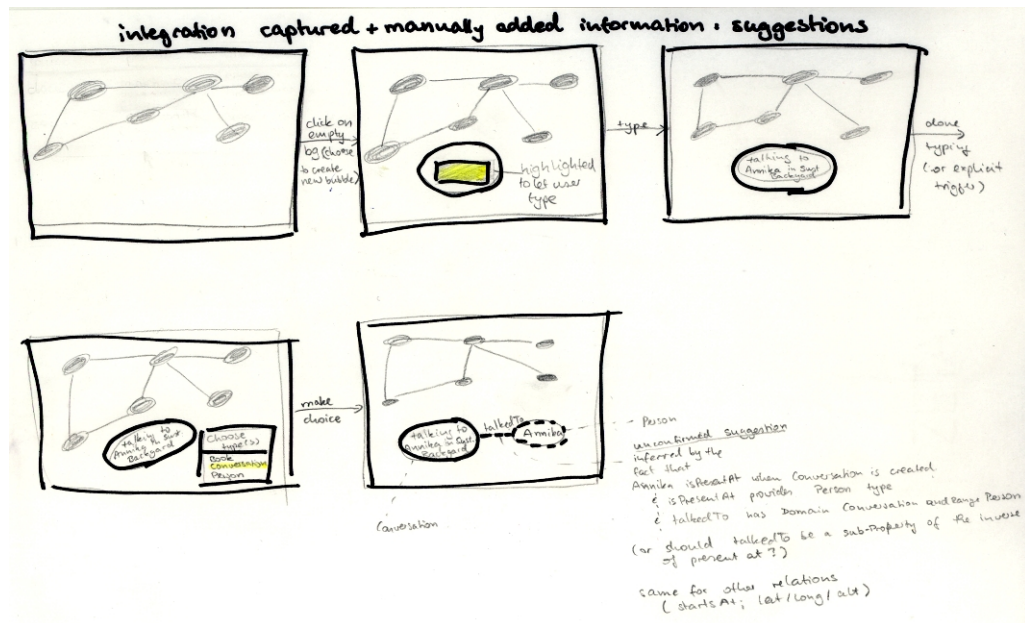 integration captured + manually added information : suggestions
click on
empty
bg (choose
to create
new bubble)
highlighted
to let user
type
type
talking to
Annika in Sust
Backyard
done
typing
(or explicit
trigger)
talking to
Annika in Sust
Backyard
Choose
type(s)
Book
Conversation
Person
make
choice
talking to
Annika in Sust.
Backyard
talkedTo
Annika
Conversation
Person
unconfirmed suggestion
inferred by the
fact that
Annika isPresentAt when Conversation is created
& isPresentAt provides Person type
& talkedTo has Domain Conversation and range Person
(or should talkedTo be a sub-Property of the inverse
of present at?)
same for other relations
(startsAt; lat/long/alt)